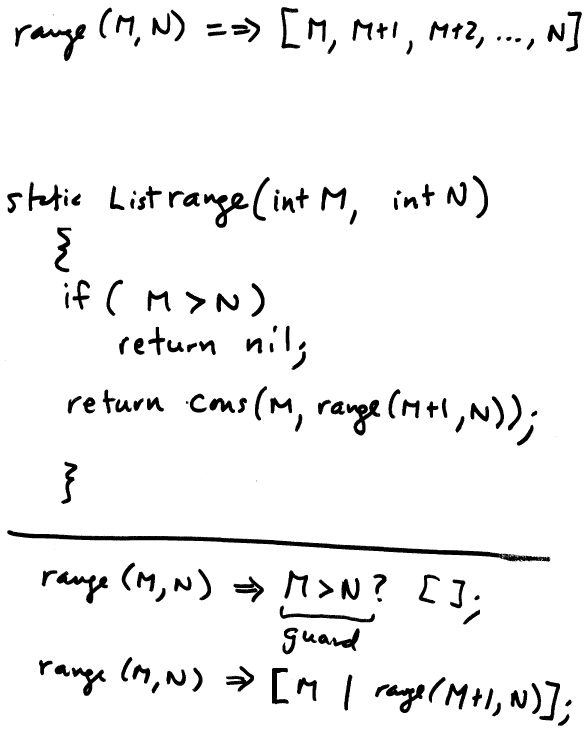 range (M, N) ==> [M, M+1, M+2, ..., N]
static List range(int M, int N)
{
if ( M > N)
return nil;
return cons(M, range(M+1, N));
}
range (M, N) => M > N ? [ ];
guard
range (M, N) => [M | range(M+1, N)];